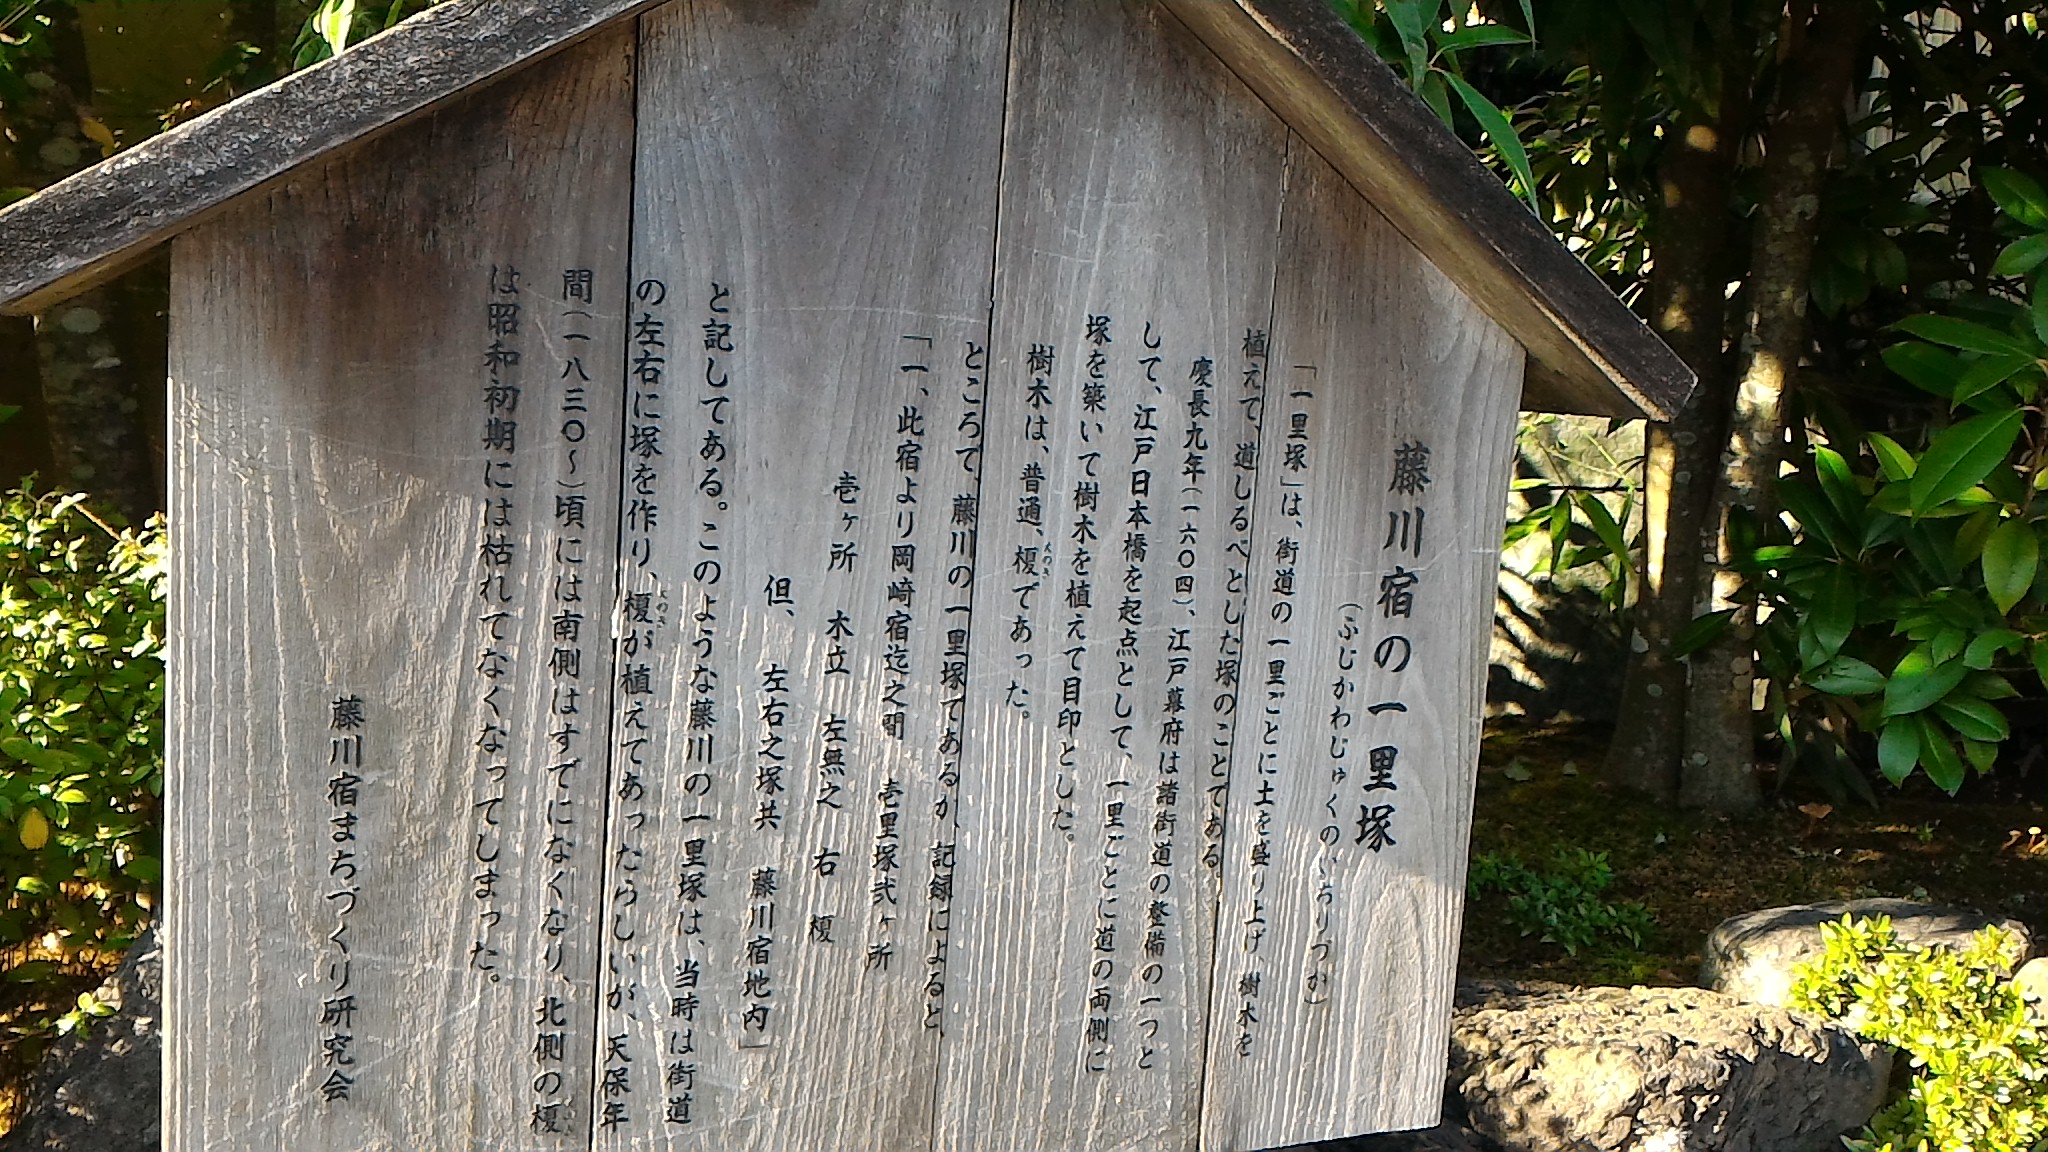 藤川宿の一里塚
(ふじかわじゅくのいちりづか)
「一里塚」は、街道の一里ごとに土を盛り上げ、樹木を
植えて、道しるべとした塚のことである。
慶長九年(一六〇四)、江戸幕府は諸街道の整備の一つと
して、江戸日本橋を起点として、一里ごとに道の両側に
塚を築いて樹木を植えて目印とした。
樹木は、普通、榎であった。
えのき
ところで、藤川の一里塚であるが、記録によると、
「一、此宿より岡崎宿迄之間 壱里塚弐ヶ所
壱ヶ所 木立 左無之 右 榎
但、 左右之塚共 藤川宿地内」
と記してある。このような藤川の一里塚は、当時は街道
の左右に塚を作り、榎が植えてあったらしいが、天保年
えのき
間(一八三〇〜)頃には南側はすでになくなり、北側の榎
は昭和初期には枯れてなくなってしまった。
藤川宿まちづくり研究会